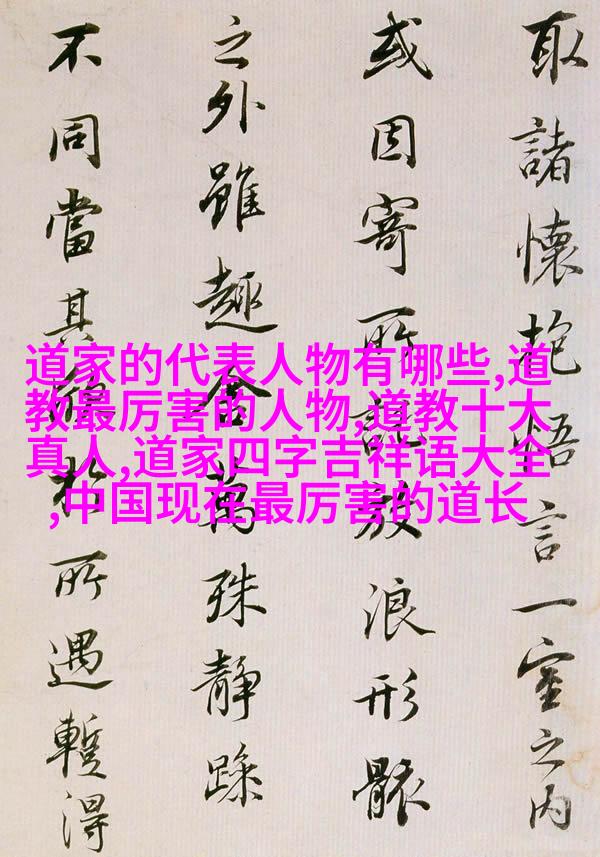 取諸懷抱悟言一室之内
或因寄所託放浪形骸
之外雖趣舍萬殊静躁
不同當其欣扵所遇蹔得
道家的代表人物有哪些,道
教最厉害的人物,道教十大
真人,道家四字吉祥语大全
,中国现在最厉害的道长